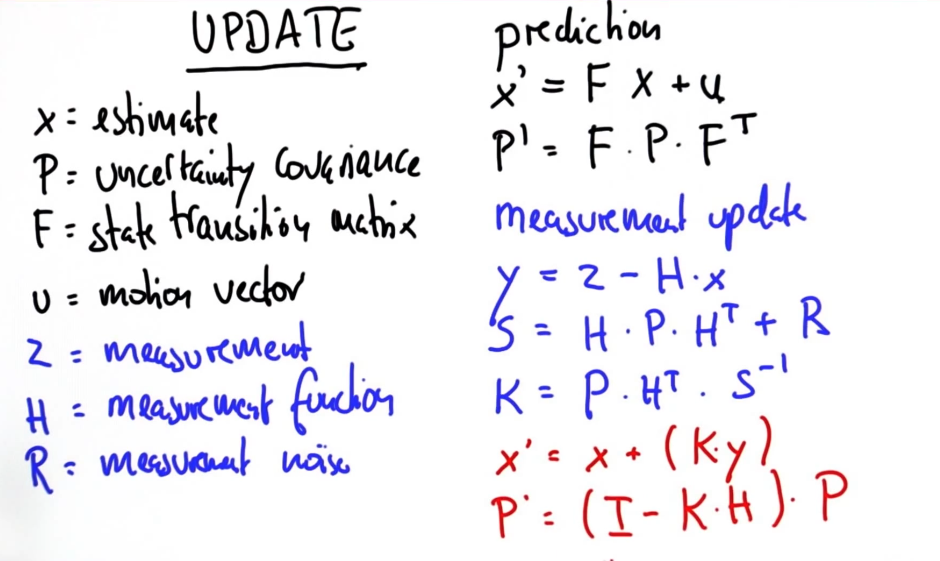 UPDATE
x = estimate
P = uncertainty covariance
F = state transition matrix
u = motion vector
z = measurement
H = measurement function
R = measurement noise
prediction
x' = F x + u
P' = F · P · Fᵀ
measurement update
y = z - H · x
S = H · P · Hᵀ + R
K = P · Hᵀ · S⁻¹
x' = x + (K·y)
P' = (I - K·H) · P